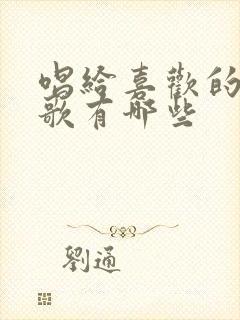 唱給喜歡的
歌有哪些
劉通